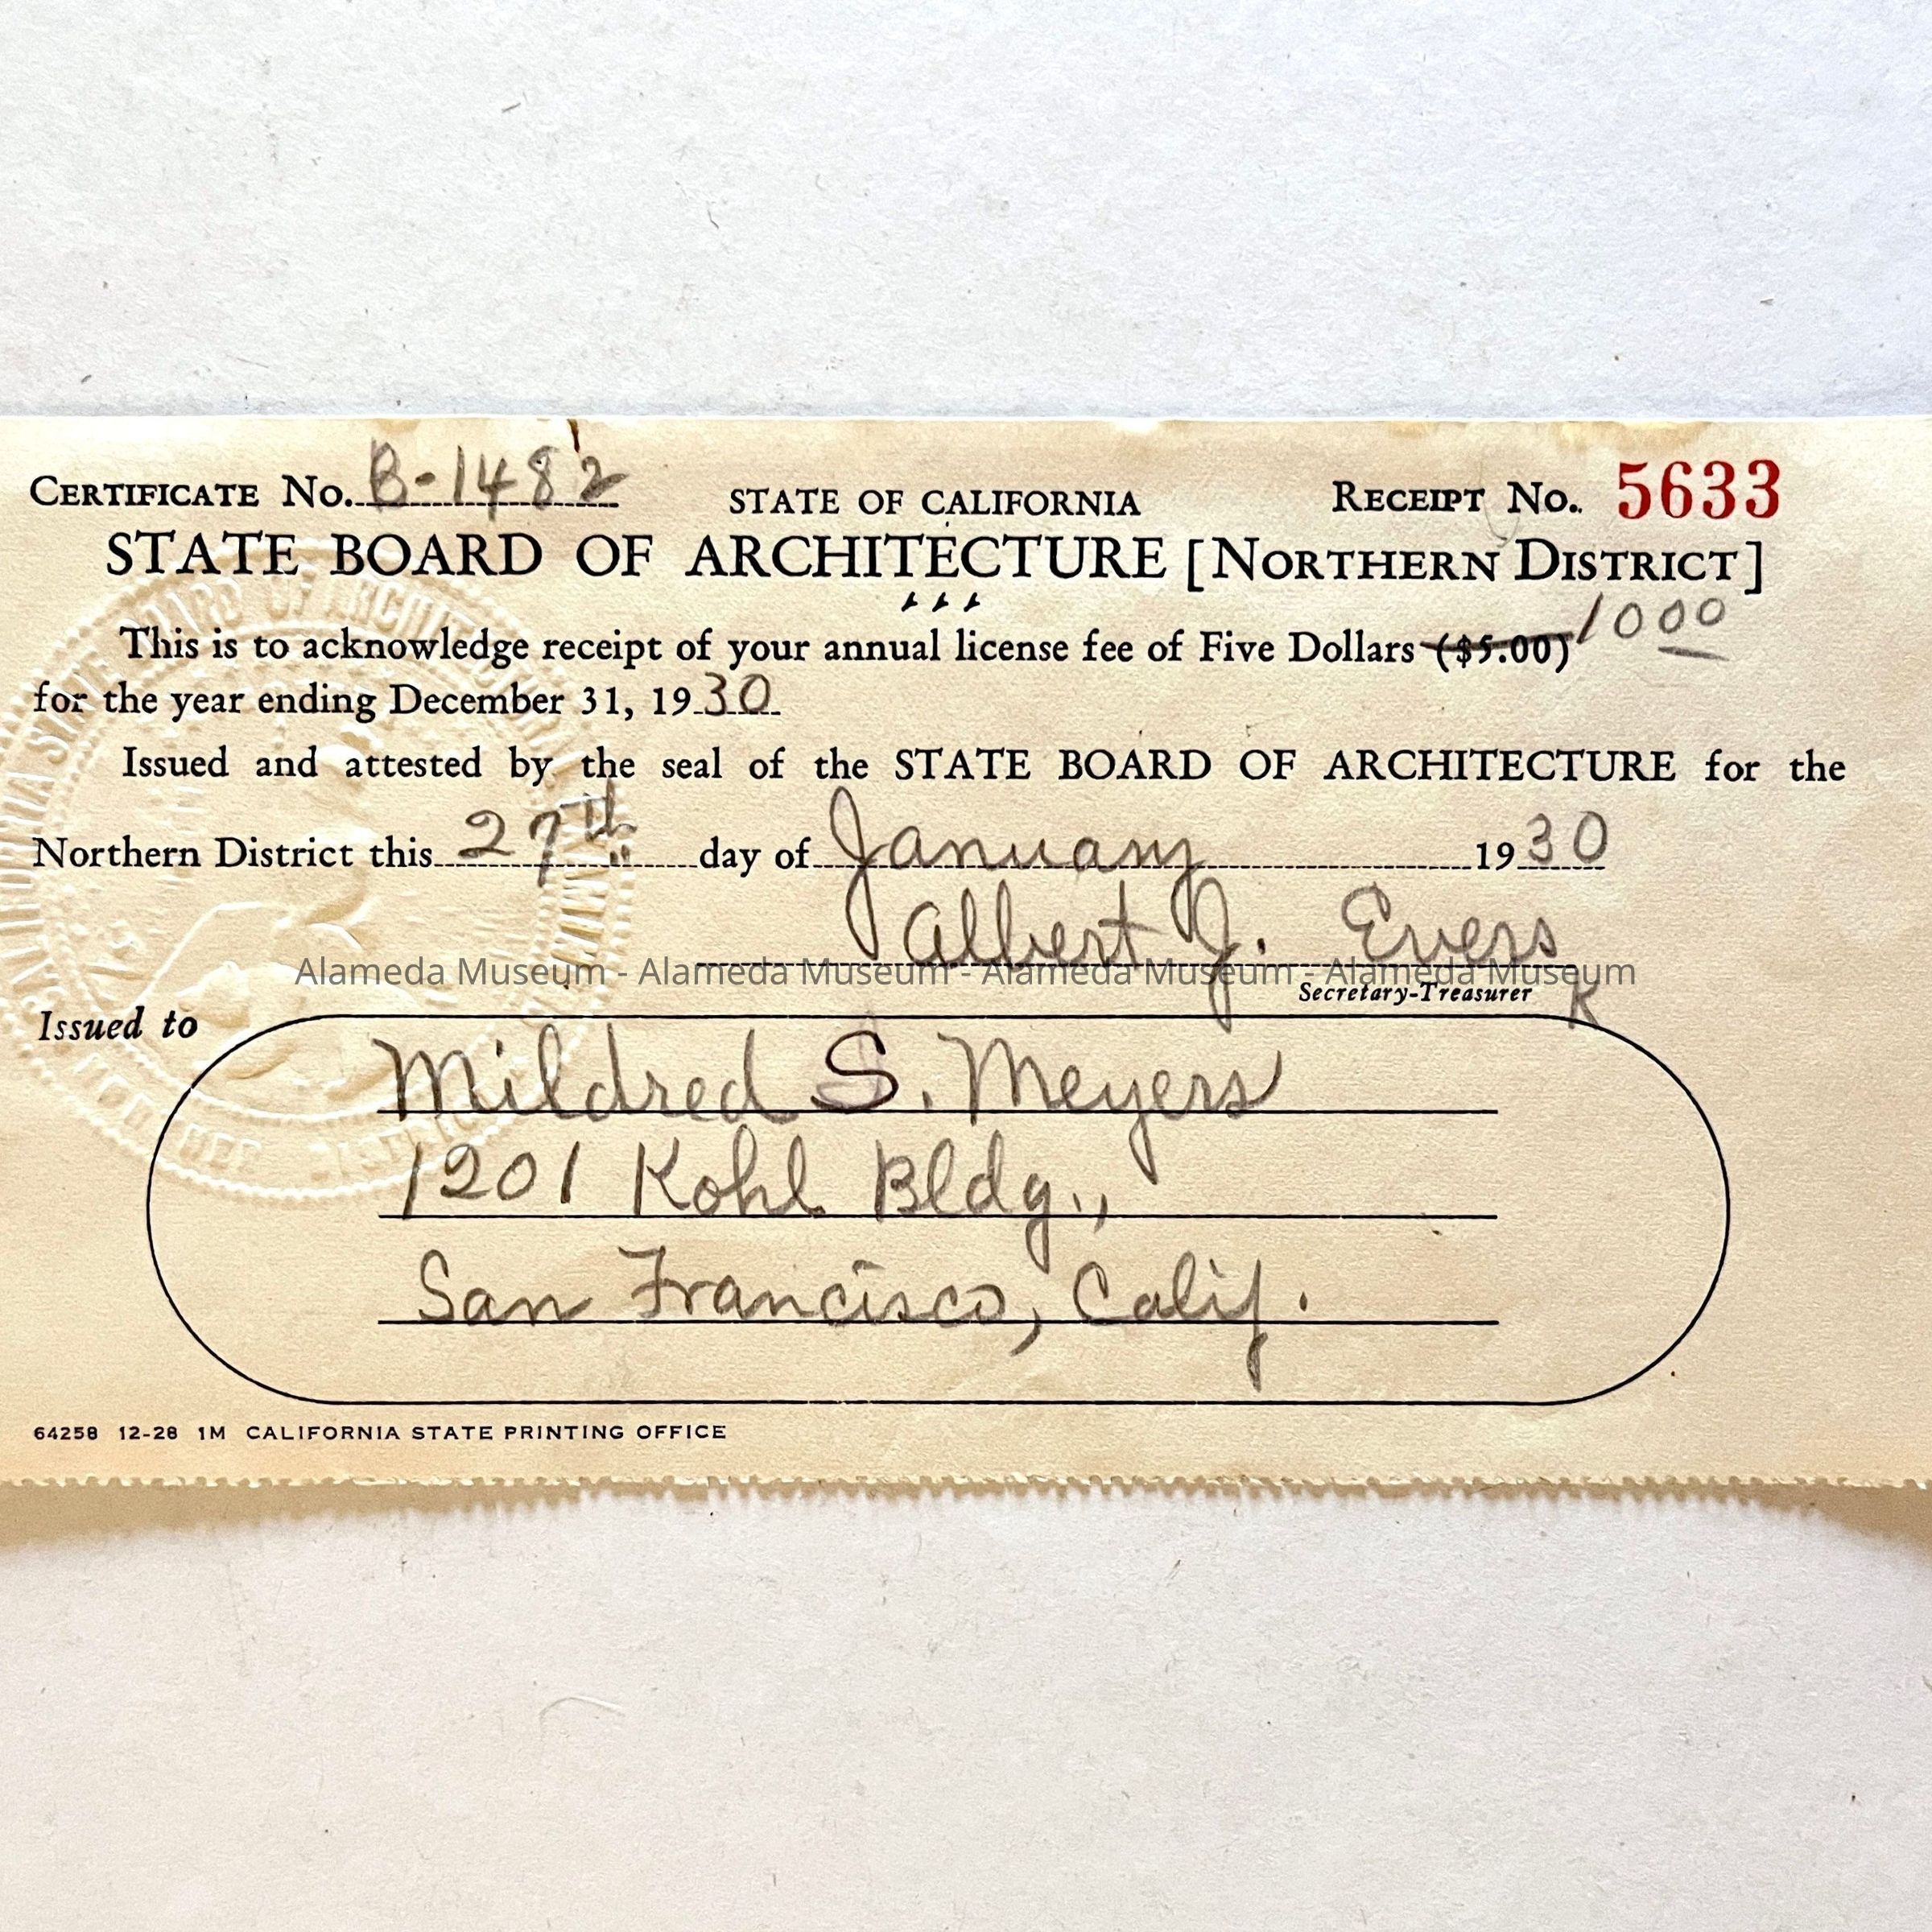 CERTIFICATE No. B-1482 STATE OF CALIFORNIA RECEIPT No. 5633
STATE BOARD OF ARCHITECTURE [NORTHERN DISTRICT]
This is to acknowledge receipt of your annual license fee of Five Dollars ($5.00) 1000
for the year ending December 31, 1930
Issued and attested by the seal of the STATE BOARD OF ARCHITECTURE for the
Northern District this 27th day of January 1930
Albert J. Evers
Alameda Museum - Alameda Museum - Alameda Museum - Alameda Museum
Secretary-Treasurer K
Issued to
Mildred S. Meyers
1201 Kohl Bldg.,
San Francisco, Calif.
64258 12-28 1M CALIFORNIA STATE PRINTING OFFICE